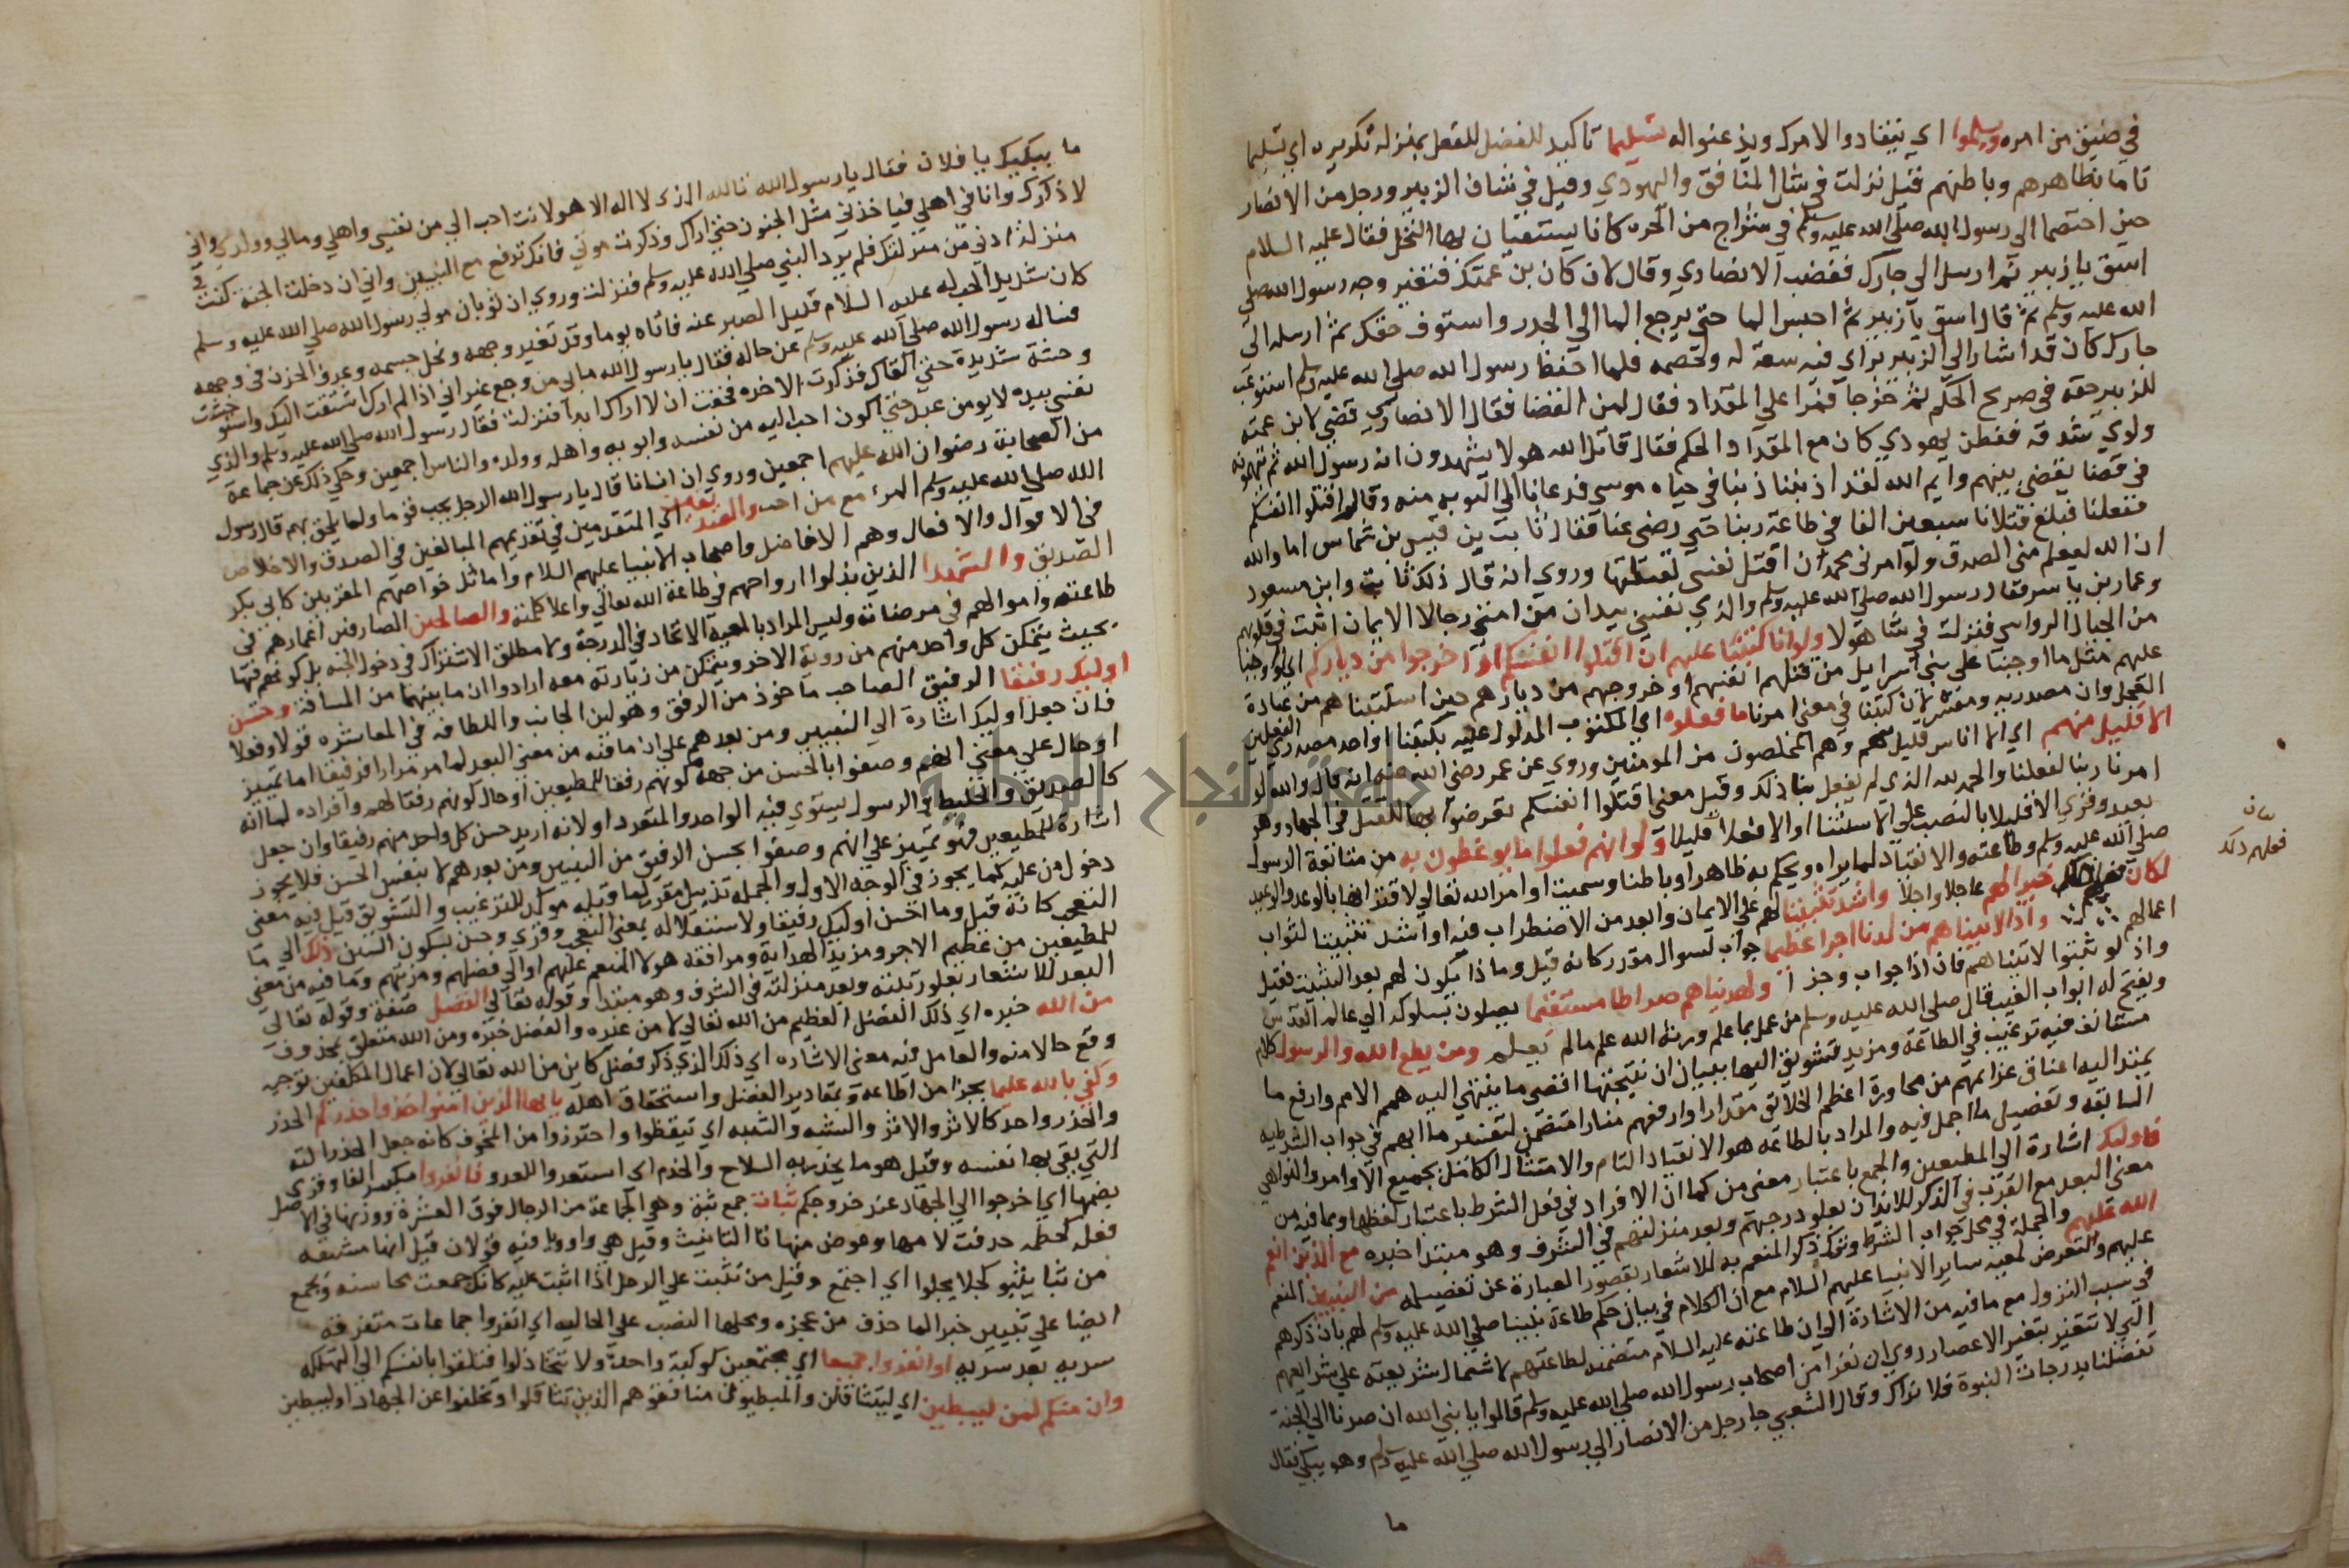 في ضيق من امره ويسلموا اي ينقادوا لامرك ويذعنوا له تسليما تاكيد للفعل بمنزلة تكريره اي تسليما
تاما بظاهرهم وباطنهم قيل نزلت في شان المنافق واليهودي وقيل في شان الزبير ورجل من الانصار
حين اختصما الي رسول الله صلي الله عليه وسلم في شراج من الحره كانا يستقيان بها النخل فقال عليه السلام
اسق يا زبير ثم ارسل الي جارك فغضب الانصاري وقال لان كان بن عمتك فتغير وجه رسول الله صلي
الله عليه وسلم ثم قال اسق يا زبير ثم احبس الما حتي يرجع الما الي الجدر واستوف حقك ثم ارسله الي
جارك كان قد اشار الي الزبير براي فيه سعة له ولخصمه فلما احفظ رسول الله صلي الله عليه وسلم استوعب
للزبير حقه في صريح الحكم ثم خرجا فمرا علي المقداد فقال لمن القضا فقال الانصاري قضي لابن عمته
ولوي شدقه ففطن يهودي كان مع المقداد الحكم فقال قاتل الله هولا يشهدون انه رسول الله ثم يتهمونه
في قضا يقضي بينهم وايم الله لقد اذنبنا ذنبا في حياه موسي فدعانا الي التوبه منه وقال اقتلوا انفسكم
ففعلنا فبلغ قتلانا سبعين الفا في طاعة ربنا حتي رضي عنا فقال ثابت بن قيس بن شماس اما والله
ان الله ليعلم مني الصدق ولو امرني محمد ان اقتل نفسي لقتلتها وروي انه قال ذلك ثابت وابن مسعود
وعمار بن ياسر فقال رسول الله صلي الله عليه وسلم والذي نفسي بيده ان من امتي رجالا الايمان اثبت في قلوبهم
من الجبال الرواسي فنزلت في شا هولا ولو انا كتبنا عليهم ان اقتلوا انفسكم او اخرجوا من دياركم اي لو اوجبنا
عليهم مثل ما اوجبنا علي بني اسرايل من قتلهم انفسهم او خروجهم من ديارهم حين استتبناهم من عبادة
العجل وان مصدريه ومفسرة لان كتبنا في معني امرنا ما فعلوه اي المكتوب المدلول عليه بكتبنا او احد مصدري الفعلين
الا قليل منهم اي الا اناس قليل منهم وهم المخلصون من المومنين وروي عن عمر رضي الله عنه انه قال والله لو
امرنا ربنا لفعلنا والحمد لله الذي لم يفعل بنا ذلك وقيل معني اقتلوا انفسكم تعرضوا بها للقتل في الجهاد وهو
بعيد وقري الا قليلا بالنصب علي الاستثنا او الا فعلا قليلا ولو انهم فعلوا ما يوعظون به من متابعة الرسول
صلي الله عليه وسلم وطاعته والانقياد لما يراه ويحكم به ظاهرا وباطنا وسميت اوامر الله تعالي لاقترانها بالوعد والوعيد
لكان خيرا لهم عاجلا واجلا واشد تثبيتا لهم علي الايمان وابعد من الاضطراب فيه او اشد تثبيتا لثواب
اعمالهم واذا لاتيناهم من لدنا اجرا عظيما جواب لسوال مقدر كانه قيل وما ذا يكون لهم بعد التثبيت فقيل
واذ لو ثبتوا لاتيناهم فان اذا جواب وجزا ولهديناهم صراطا مستقيما يصلون بسلوكه الي عالم القدس
ويفتح له ابواب الغيب قال صلي الله عليه وسلم من عمل بما علم ورثه الله علم ما لم يعلم ومن يطع الله والرسول كلام
مستانف فيه ترغيب في الطاعة ومزيد تشويق اليها ببيان ان نتيجتها اقصي ما ينتهي اليه همم الامم وارفع ما
يمتد اليه اعناق عزايمهم من مجاورة اعظم الخلايق مقدارا وارفعهم منارا متضمن لتفسير ما ابهم في جواب الشرطيه
السابقه وتفصيل ما اجمل فيه والمراد بالطاعه هو الانقياد التام والامتثال الكامل بجميع الاوامر والنواهي
فاوليك اشارة الي المطيعين والجمع باعتبار معني من كما ان الافراد في فعل الشرط باعتبار لفظها وما فيه من
معني البعد مع القرب في الذكر للايذان بعلو درجتهم وبعد منزلتهم في الشرف وهو مبتدا خبره مع الذين انعم
الله عليهم والجملة في محل جواب الشرط وترك ذكر المنعم به للاشعار بقصور العبارة عن تفصيله من النبيين المنعم
عليهم والتعرض لمعية ساير الانبيا عليهم السلام مع ان الكلام في بيان حكم طاعة نبينا صلي الله عليه وسلم لهم بان ذكرهم
في سبب النزول مع ما فيه من الاشارة الي ان طاعته عليه السلام متضمنة لطاعتهم لاشتمال شريعته علي شرايعهم
التي لا تتغير بتغير الاعصار روي ان نفرا من اصحاب رسول الله صلي الله عليه وسلم قالوا يا نبي الله ان صرنا الي الجنة
تفضلنا بدرجات النبوة فلا نراك وقال الشعبي جا رجل من الانصار الي رسول الله صلي الله عليه وسلم وهو يبكي فقال
ما
فعلهم ذلك
ما يبكيك يا فلان فقال يا رسول الله تالله الذي لا اله الا هو لانت احب الي من نفسي واهلي ومالي وولدي واني
لاذكرك وانا في اهلي فياخذني مثل الجنون حتي اراك وذكرت موتي فانك ترفع مع النبيين واني ان دخلت الجنة كنت في
منزلة ادني من منزلتك فلم يرد النبي صلي الله عليه وسلم فنزلت وروي ان ثوبان مولي رسول الله صلي الله عليه وسلم
كان شديد الحب له عليه السلام قليل الصبر عنه فاتاه يوما وقد تغير وجهه ونحل جسمه وعرف الحزن في وجهه
فساله رسول الله صلي الله عليه وسلم عن حاله فقال يا رسول الله ما بي من وجع غير اني اذا لم ارك اشتقت اليك واستوحشت
وحشة شديدة حتي القاك فذكرت الاخره فخفت ان لا اراك ابدا فنزلت فقال رسول الله صلي الله عليه وسلم والذي
نفسي بيده لا يومن عبد حتي اكون احب اليه من نفسه وابويه واهله وولده والناس اجمعين وحكي ذلك عن جماعة
من الصحابة رضوان الله عليهم اجمعين وروي ان انسانا قال يا رسول الله الرجل يحب قوما ولما يلحق بهم قال رسول
الله صلي الله عليه وسلم المرء مع من احب والصديقين اي المتقدمين في تقديمهم المبالغين في الصدق والاخلاص
في الاقوال والافعال وهم الافاضل واصحاب الانبيا عليهم السلام واماثل خواصهم المقربين كابي بكر
الصديق والشهدا الذين بذلوا ارواحهم في طاعة الله تعالي واعلا كلمته والصالحين الصارفين اعمارهم في
طاعته واموالهم في مرضاته وليس المراد بالمعية الاتحاد في الدرجة ولا مطلق الاشتراك في دخول الجنه بل كونهم فيها
بحيث يتمكن كل واحد منهم من روية الاخر ويتمكن من زيارته معه ارادوا ان ما بينهما من المسافة وحسن
اوليك رفيقا الرفيق الصاحب ماخوذ من الرفق وهو لين الجانب واللطافه في المعاشره قولا وفعلا
فان جعل اوليك اشارة الي النبيين ومن بعدهم علي ان ما فيه من معني البعد لما مر مرارا فرفيقا اما تمييز
او حال علي معني انهم وصفوا بالحسن من جهة كونهم رفقا للمطيعين او حال كونهم رفقا لهم وافراده لما انه
كالصديق والخليط والرسول يستوي فيه الواحد والمتعدد او لانه اريد حسن كل واحد منهم رفيقا وان جعل
اشارة للمطيعين فهو تمييز علي انهم وصفوا بحسن الرفيق من النبيين ومن بعدهم لا بنفس الحسن فلا يجوز
دخول من عليه كما يجوز في الوجه الاول والجملة تذييل مقرر لما قبله موكد للترغيب والتشويق قيل فيه معني
التعجب كانه قيل وما احسن اوليك رفيقا ولاستقلاله بمعني التعجب وقري وحسن بسكون السين ذلك الي ما
للمطيعين من عظيم الاجر ومزيد الهداية ومرافقة هولا المنعم عليهم او الي فضلهم ومزيتهم وما فيه من معني
البعد للاشعار بعلو رتبته وبعد منزلته في الشرف وهو مبتدا وقوله تعالي الفضل صفة وقوله تعالي
من الله خبره اي ذلك الفضل العظيم من الله تعالي لا من غيره والفضل خبره ومن الله متعلق بمحذوف
وقع حالا منه والعامل فيه معني الاشاره اي ذلك الذي ذكر فضل كاين من الله تعالي لان اعمال المكلفين توجبه
وكفي بالله عليما بجزا من اطاعه وبمقادير الفضل واستحقاق اهله يايها الذين امنوا خذوا حذركم الحذر
والحذر واحد كالاثر والاثر والشبه والشبه اي تيقظوا واحترزوا من المخوف كانه جعل الحذر الته
التي يقي بها نفسه وقيل هو ما يحذر به السلاح والحزم اي استعدوا للعدو فانفروا مكسر الفا وقري
بضمها اي اخرجوا الي الجهاد عند خروجكم ثبات جمع ثبة وهي الجماعة من الرجال فوق العشرة ووزنها في الاصل
فعلة كحطمه حذفت لامها وعوض منها تا التانيث وقيل هي واو ويا فيه قولان قيل انها مشتقه
من ثبا يثبو كحلا يحلوا اي اجتمع وقيل من ثبيت علي الرجل اذا اثنيت عليه كانك جمعت محاسنه ويجمع
ايضا علي ثبيين خبرا لما حذف من عجزه ومحلها النصب علي الحاليه اي انفروا جماعات متفرقه
سريه بعد سريه او انفروا جميعا اي مجتمعين كوكبة واحدة ولا تتخاذلوا فتلقوا بانفسكم الي التهلكه
وان منكم لمن ليبطين اي ليتثاقلن والمبطيون منافقوهم الذين تثاقلوا وتخلفوا عن الجهاد او ليبطين